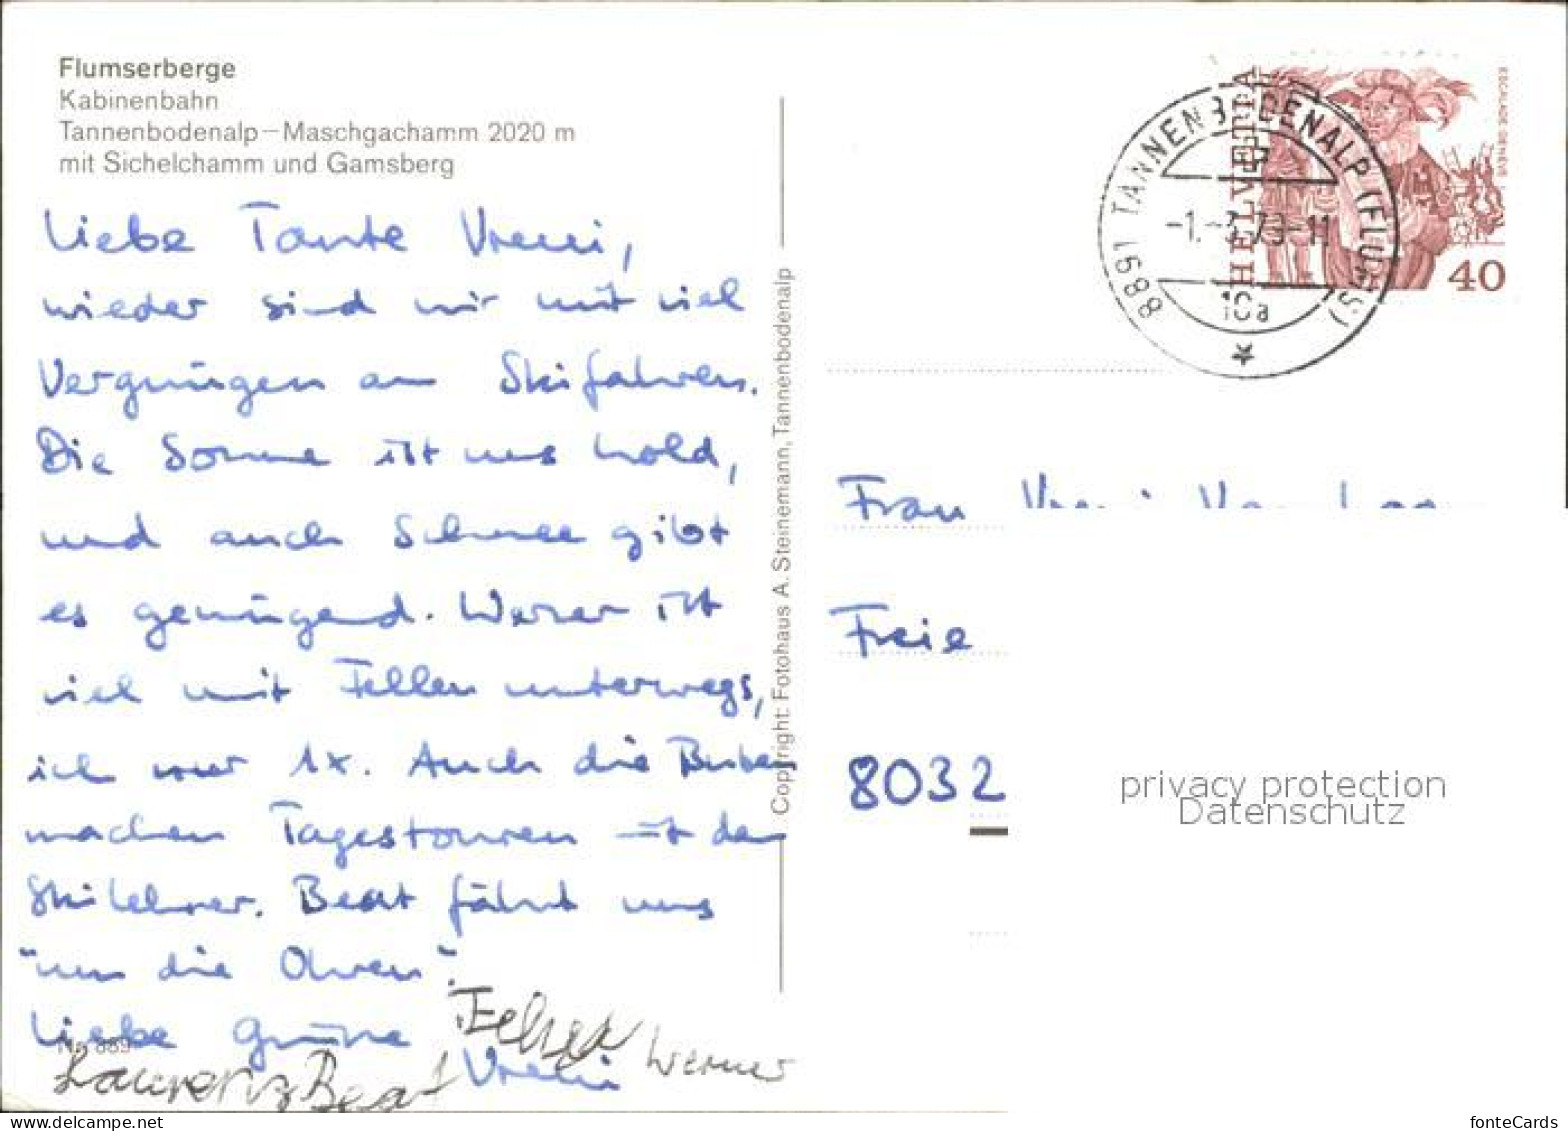 Flumserberge
Kabinenbahn
Tannenbodenalp – Maschgachamm 2020 m
mit Sichelchamm und Gamsberg
Liebe Tante Vreni,
wieder sind wir mit viel
Vergnügen am Skifahren.
Die Sonne ist uns hold,
und auch Schnee gibt
es genügend. Werner ist
viel mit Fellen unterwegs,
ich nur 1x. Auch die Buben
machen Tagestouren mit dem
Skilehrer. Beat fährt uns
"um die Ohren".
Liebe Grüsse
Vreni
Werner
Laurenz Beat
No 889
Copyright: Fotohaus A. Steinemann, Tannenbodenalp
8891 TANNENBODENALP (FLUMS)
-1.-3.79-11
10a
HELVETIA
ESCALADE GENÈVE
40
Frau Vreni
Freie
8032
privacy protection
Datenschutz
www.ansichtskartenversand.com
fonteCards